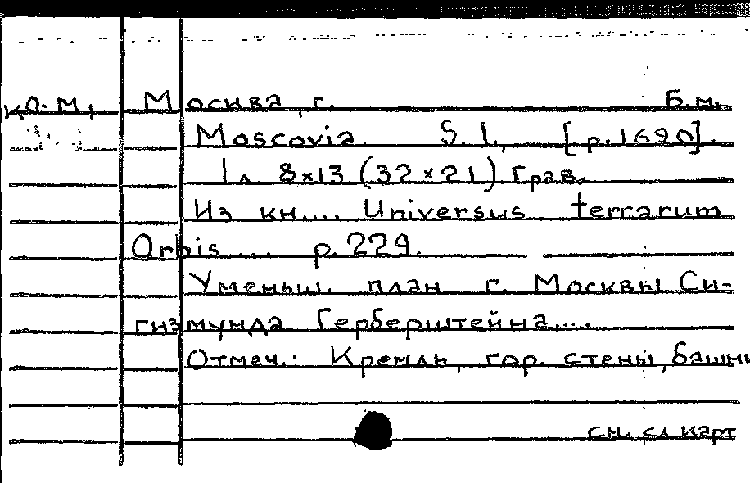 к.о.м. Москва, г. Б.м.
Moscovia. S. l., [p.1690].
1 л 8×13 (32×21) Грав.
Из кн.... Universus terrarum
Orbis ... p.229.
Уменьш. план г. Москвы Си-
гизмунда Герберштейна....
Отмеч.: Кремль, гор. стены, башни
см. сл карт